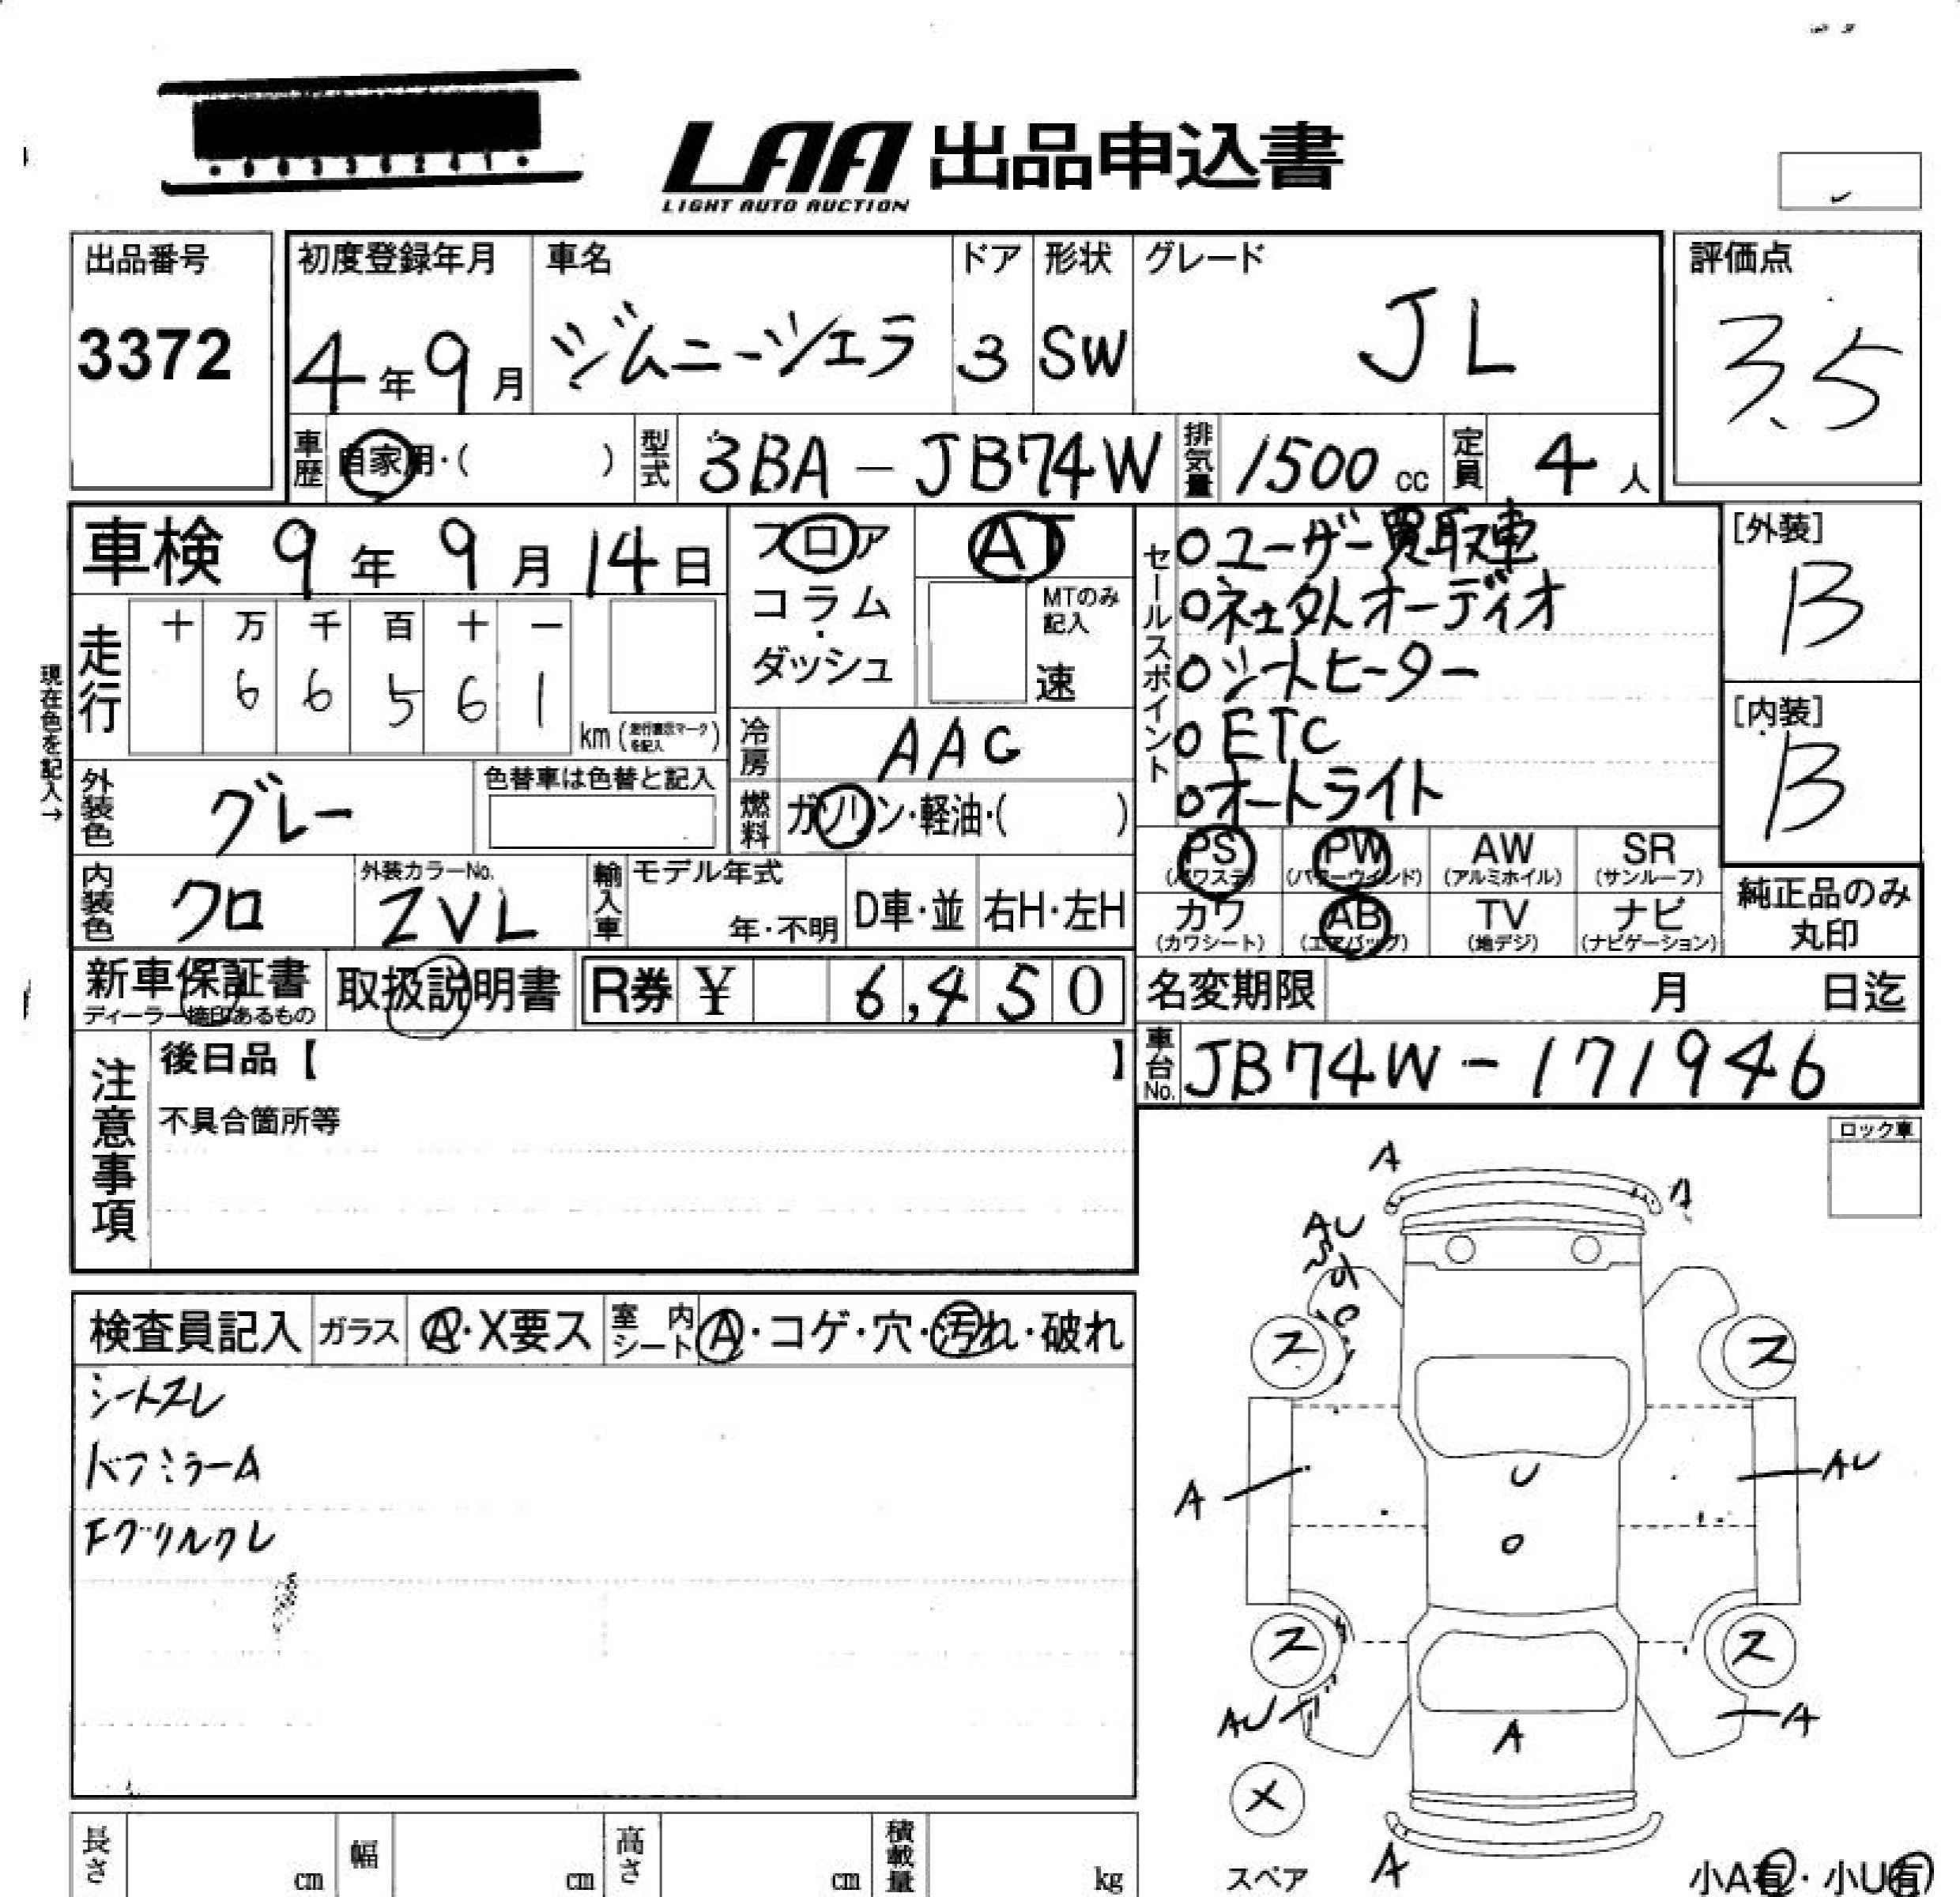 LAA 出品申込書
LIGHT AUTO AUCTION
出品番号
3372
初度登録年月
4年9月
車名
ジムニーシエラ
ドア
3
形状
SW
グレード
JL
評価点
3.5
車歴 自家用・( )
型式 3BA-JB74W
排気量 1500 cc
定員 4人
車検 9年9月14日
走行
十 万 千 百 十 一
6 6 5 6 1
km (走行表示マークを記入)
現在色を記入→
フロア・コラム・ダッシュ
AT
MTのみ記入
速
冷房 AAC
燃料 ガソリン・軽油・( )
セールスポイント
○ユーザー買取車
○オーディオ
○シートヒーター
○ETC
○オートライト
[外装]
B
[内装]
B
外装色 グレー
色替車は色替と記入
内装色 クロ
外装カラーNo.
ZVL
輸入車
モデル年式
年・不明
D車・並
右H・左H
PS
(パワステ)
PW
(パワーウインド)
AW
(アルミホイル)
SR
(サンルーフ)
カワ
(カワシート)
AB
(エアバッグ)
TV
(地デジ)
ナビ
(ナビゲーション)
純正品のみ
丸印
新車保証書
ディーラー捺印あるもの
取扱説明書
R券 ¥ 6,450
名変期限 月 日迄
車台No. JB74W-171946
注意事項
後日品【 】
不具合箇所等
ロック車
検査員記入
ガラス A・X要ス
室内シート A・コゲ・穴・汚れ・破れ
シートスレ
ミラーA
Fグリルクレ
A
A
AU
ス
ス
A
AU
U
ス
ス
AU
A
A
X
スペア
A
小A有・小U有
長さ cm
幅 cm
高さ cm
積載量 kg